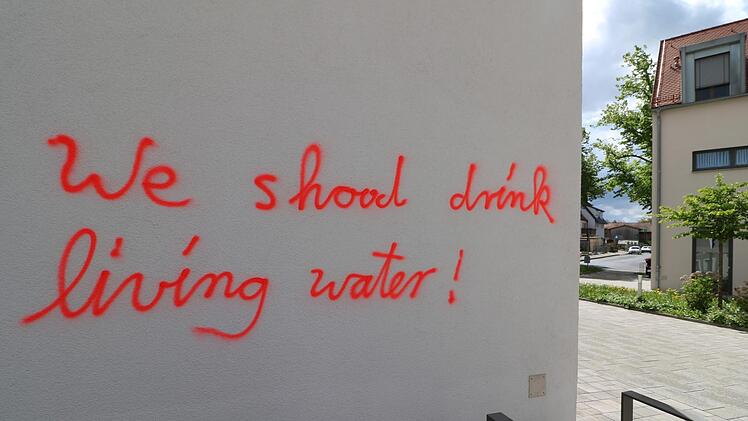 We shood drink
living water!